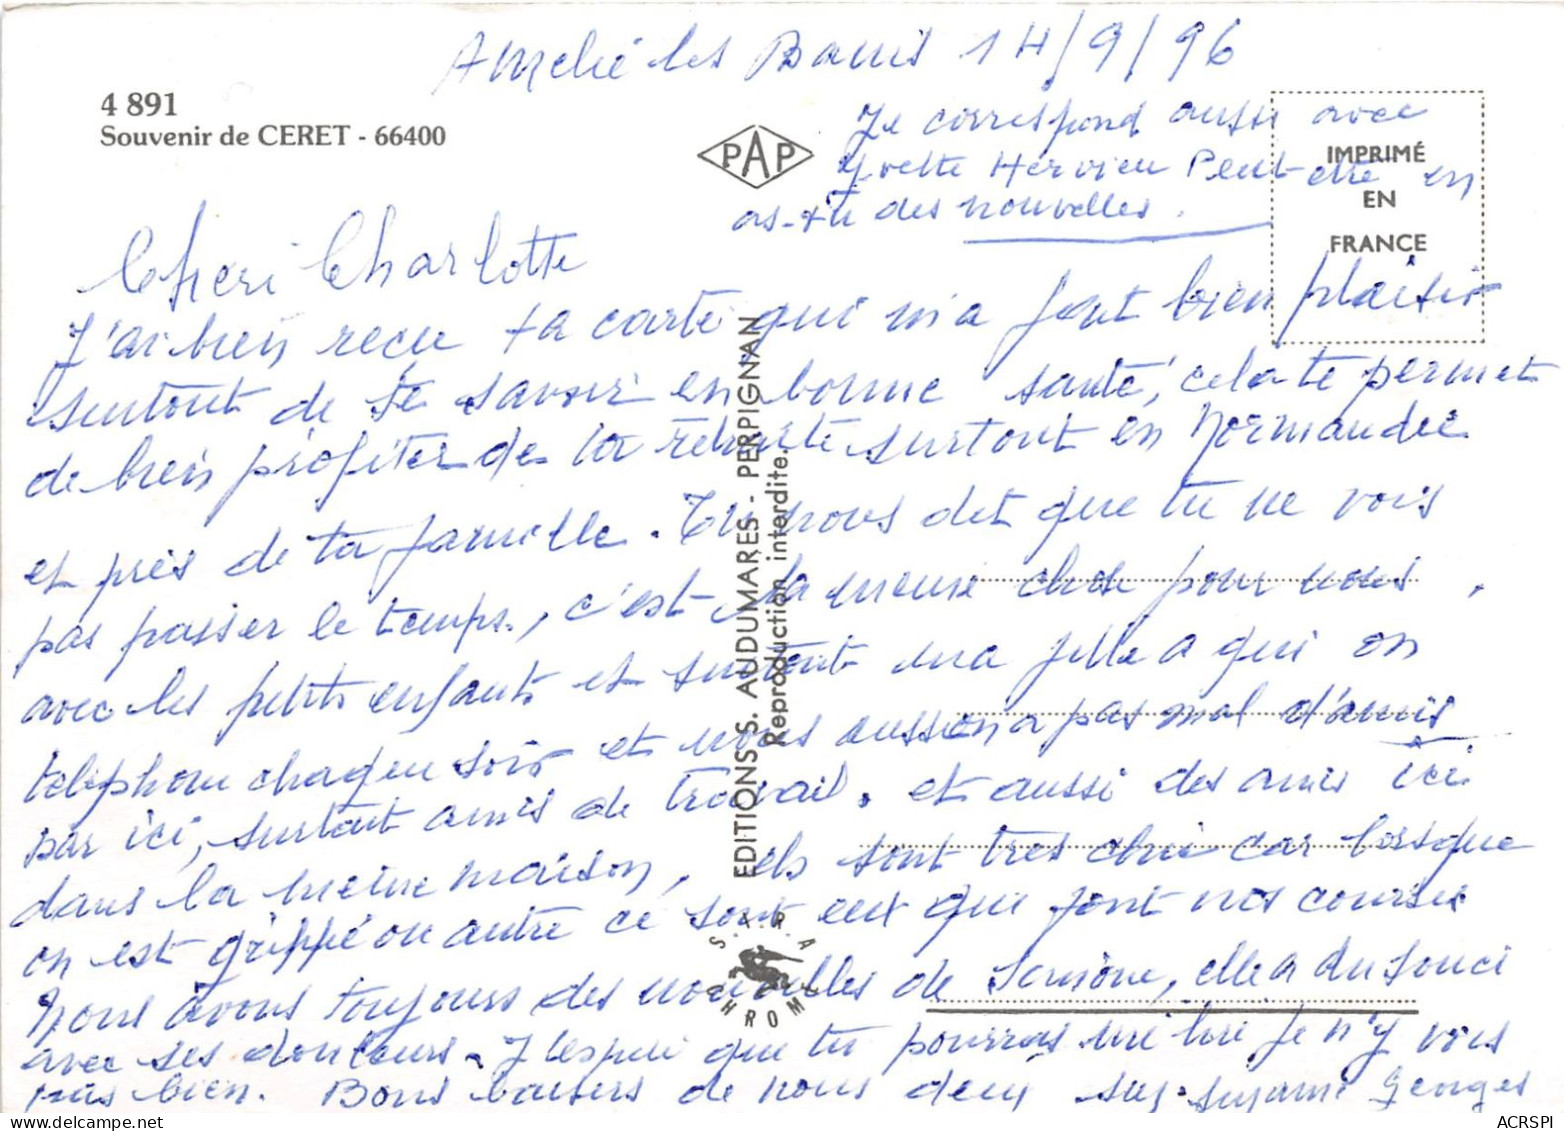 Amelie les Bains 14/9/96
4 891
Souvenir de CERET - 66400
PAP
IMPRIMÉ
EN
FRANCE
Je correspond aussi avec
Yvette Hervieu Peut-etre en
as-tu des nouvelles.
Cheri Charlotte
J'ai bien reçu ta carte qui m'a font bien plaisir
surtout de te savoir en bonne santé, cela te permet
de bien profiter de la retraite surtout en Normandie
et près de ta famille. Tu nous dit que tu ne vois
pas passer le temps, c'est la meme chose pour nous,
avec les petits enfants et surtout ma fille a qui on
telephone chaque soir et nous aussi on a pas mal d'amis
par ici, surtout amis de travail. et aussi des amis ici
dans la meme maison, ils sont tres chic car lorsque
on est grippé ou autre ce sont eux qui font nos courses
Nous avons toujours des nouvelles de Simone, elle a du souci
avec ses douleurs. J'espere que tu pourras me lire je n'y vois
pas bien. Bons baisers de nous deux Suzanne Georges
EDITIONS S. AUDUMARES - PERPIGNAN
Reproduction interdite.
S.A.R.A
CHROME
ACRSPI